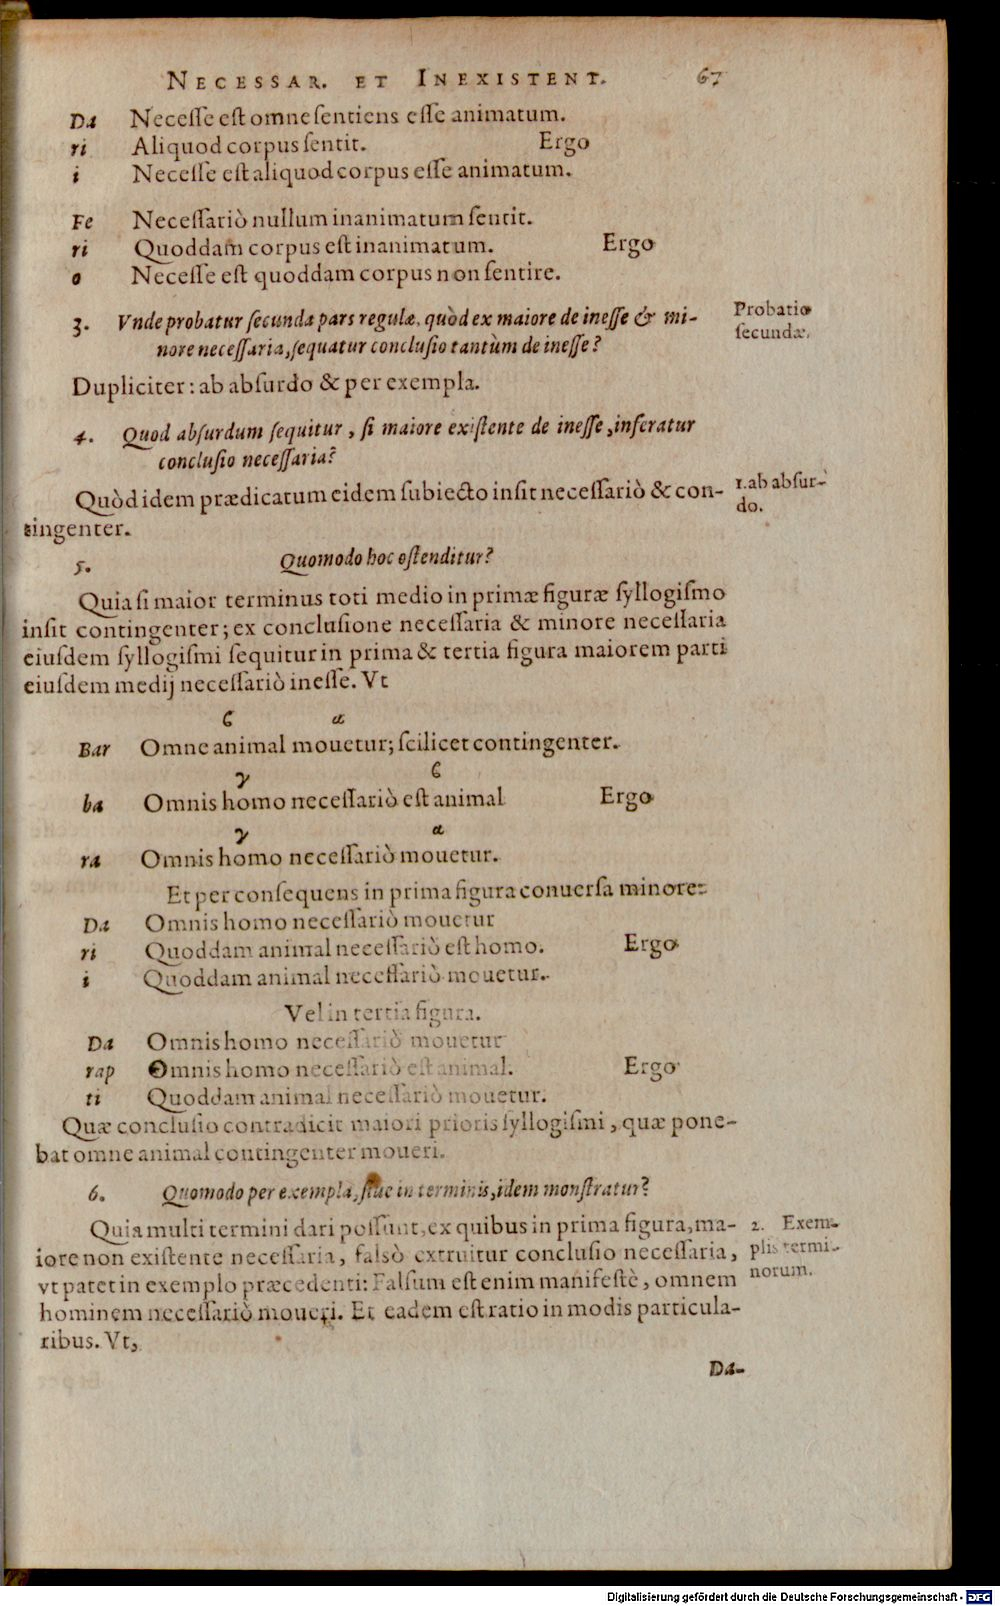 NECESSAR. ET INEXISTENT. 67
Da Necesse est omne sentiens esse animatum.
ri Aliquod corpus sentit. Ergo
i Necesse est aliquod corpus esse animatum.
Fe Necessariò nullum inanimatum sentit.
ri Quoddam corpus est inanimatum. Ergo
o Necesse est quoddam corpus non sentire.
3. Vnde probatur secunda pars regulæ, quòd ex maiore de inesse & mi-
nore necessaria, sequatur conclusio tantùm de inesse?
Probatio
secundæ.
Dupliciter: ab absurdo & per exempla.
4. Quod absurdum sequitur, si maiore existente de inesse, inferatur
conclusio necessaria?
Quòd idem prædicatum eidem subiecto insit necessariò & con-
tingenter.
1. ab absur-
do.
5. Quomodo hoc ostenditur?
Quia si maior terminus toti medio in primæ figuræ syllogismo
insit contingenter; ex conclusione necessaria & minore necessaria
eiusdem syllogismi sequitur in prima & tertia figura maiorem parti
eiusdem medij necessariò inesse. Vt
ϐ α
Bar Omne animal mouetur; scilicet contingenter.
γ ϐ
ba Omnis homo necessariò est animal Ergo
γ α
ra Omnis homo necessariò mouetur.
Et per consequens in prima figura conuersa minore:
Da Omnis homo necessariò mouetur
ri Quoddam animal necessariò est homo. Ergo
i Quoddam animal necessariò mouetur.
Vel in tertia figura.
Da Omnis homo necessariò mouetur
rap Omnis homo necessariò est animal. Ergo
ti Quoddam animal necessariò mouetur.
Quæ conclusio contradicit maiori prioris syllogismi, quæ pone-
bat omne animal contingenter moueri.
6. Quomodo per exempla, siue in terminis, idem monstratur?
Quia multi termini dari possunt, ex quibus in prima figura, ma-
iore non existente necessaria, falsò extruitur conclusio necessaria,
vt patet in exemplo præcedenti: Falsum est enim manifestè, omnem
hominem necessariò moueri. Et eadem est ratio in modis particula-
ribus. Vt,
2. Exem-
plis termi-
norum.
Da-
Digitalisierung gefördert durch die Deutsche Forschungsgemeinschaft - DFG